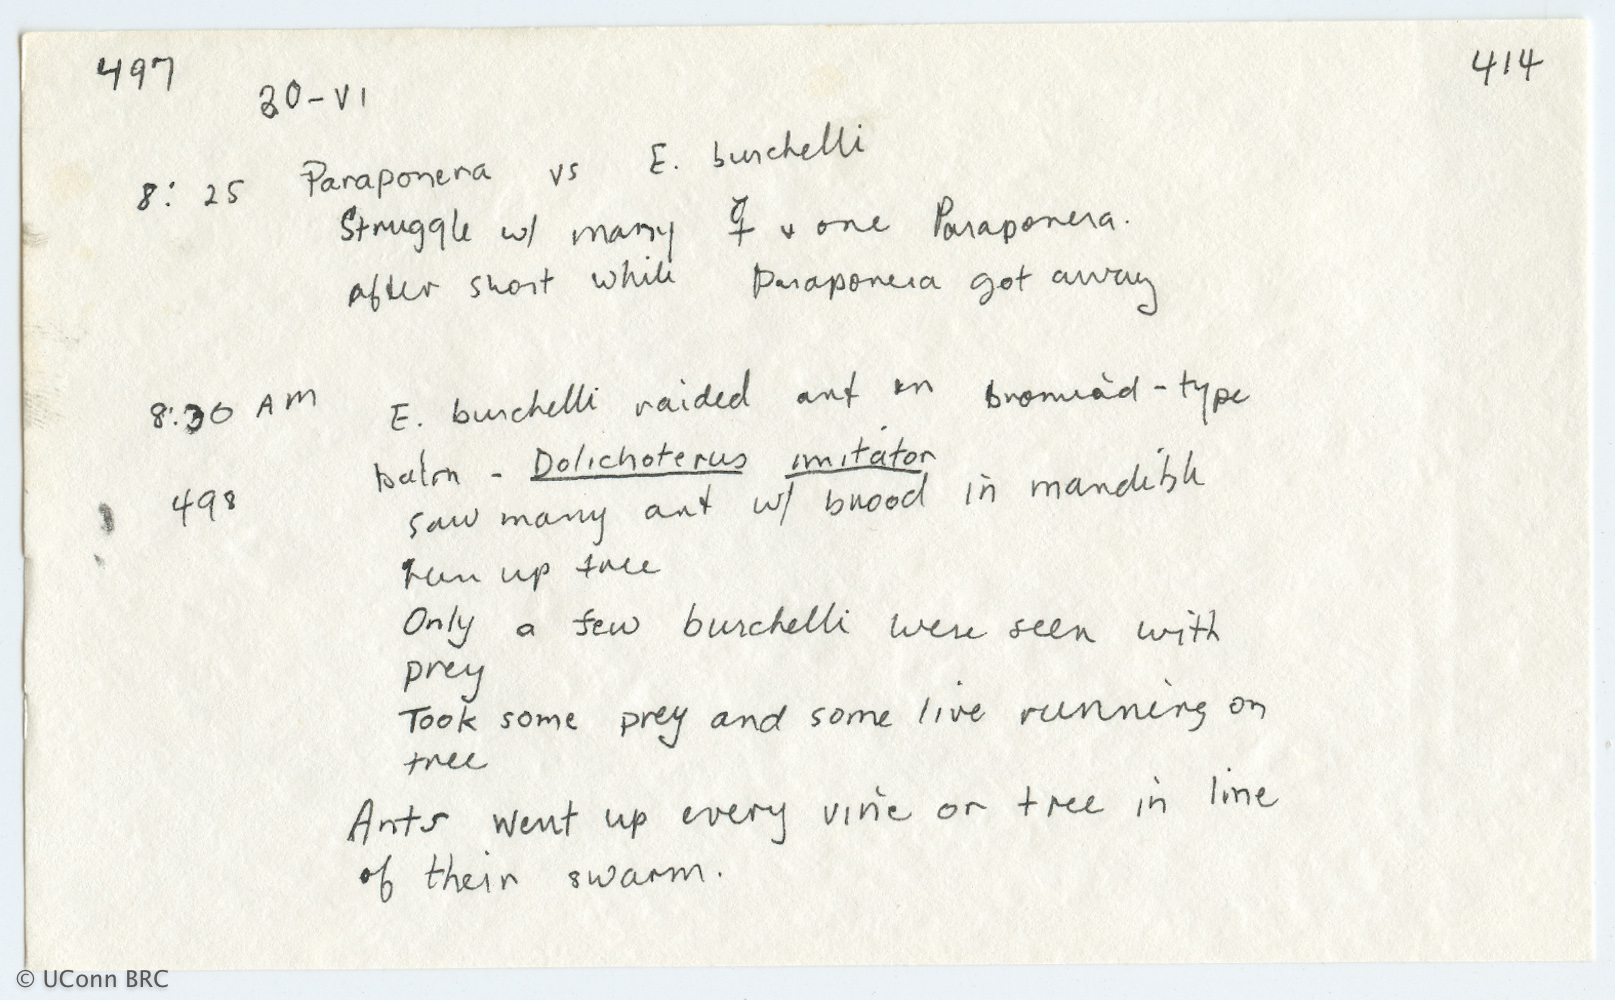 497
414
30-VI
8:25 Paraponera vs E. burchelli
Struggle w/ many ☿ + one Paraponera.
after short while Paraponera got away
8:30 AM E. burchelli raided ant on bromeliad-type
palm - Dolichoterus imitator
498
saw many ant w/ brood in mandible
run up tree
Only a few burchelli were seen with
prey
Took some prey and some live running on
tree
Ants went up every vine or tree in line
of their swarm.
© UConn BRC